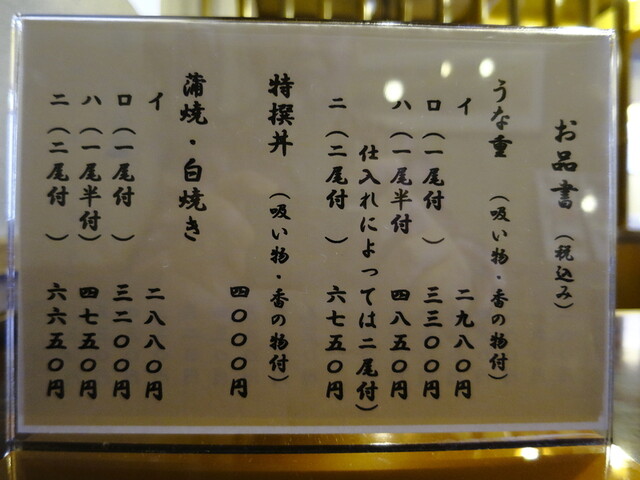 お品書(税込み)
うな重(吸い物・香の物付)
イ 二九八〇円
ロ(一尾付)三三〇〇円
ハ(一尾半付 四八五〇円
仕入れによっては二尾付)
ニ(二尾付)六七五〇円
特撰丼(吸い物・香の物付)
四〇〇〇円
蒲焼・白焼き
イ 二八八〇円
ロ(一尾付)三二〇〇円
ハ(一尾半付)四七五〇円
ニ(二尾付)六六五〇円